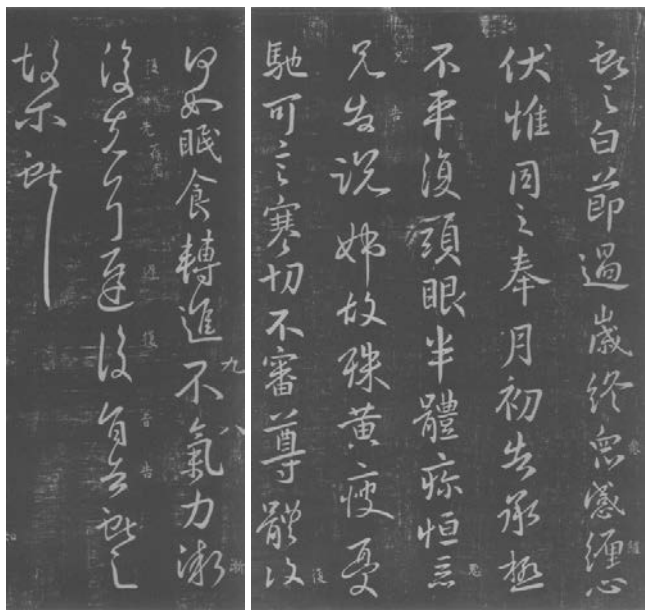 獻之白節過歲終眾感纏心
伏惟同之奉月初告承極
不平復頭眼半體疼恒惡
兄告說姊故殊黃瘦憂
馳可言寒切不審尊體復
何如眠食轉進不氣力漸
復先可遲復旨告獻之
故不獻